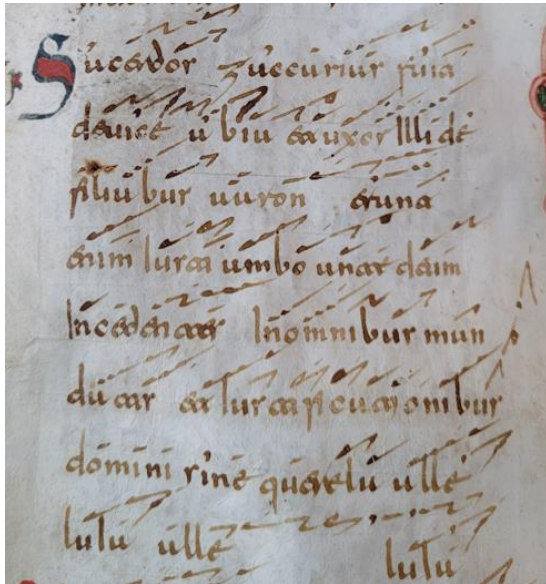 Sacerdos zaccarias fuit
de vice abia et uxor illi de
filiabus aaron erant
enim iusti ambo ante deum
Incedentes In omnibus man
datis et iustificationibus
domini sine querela alle
luia alle luia